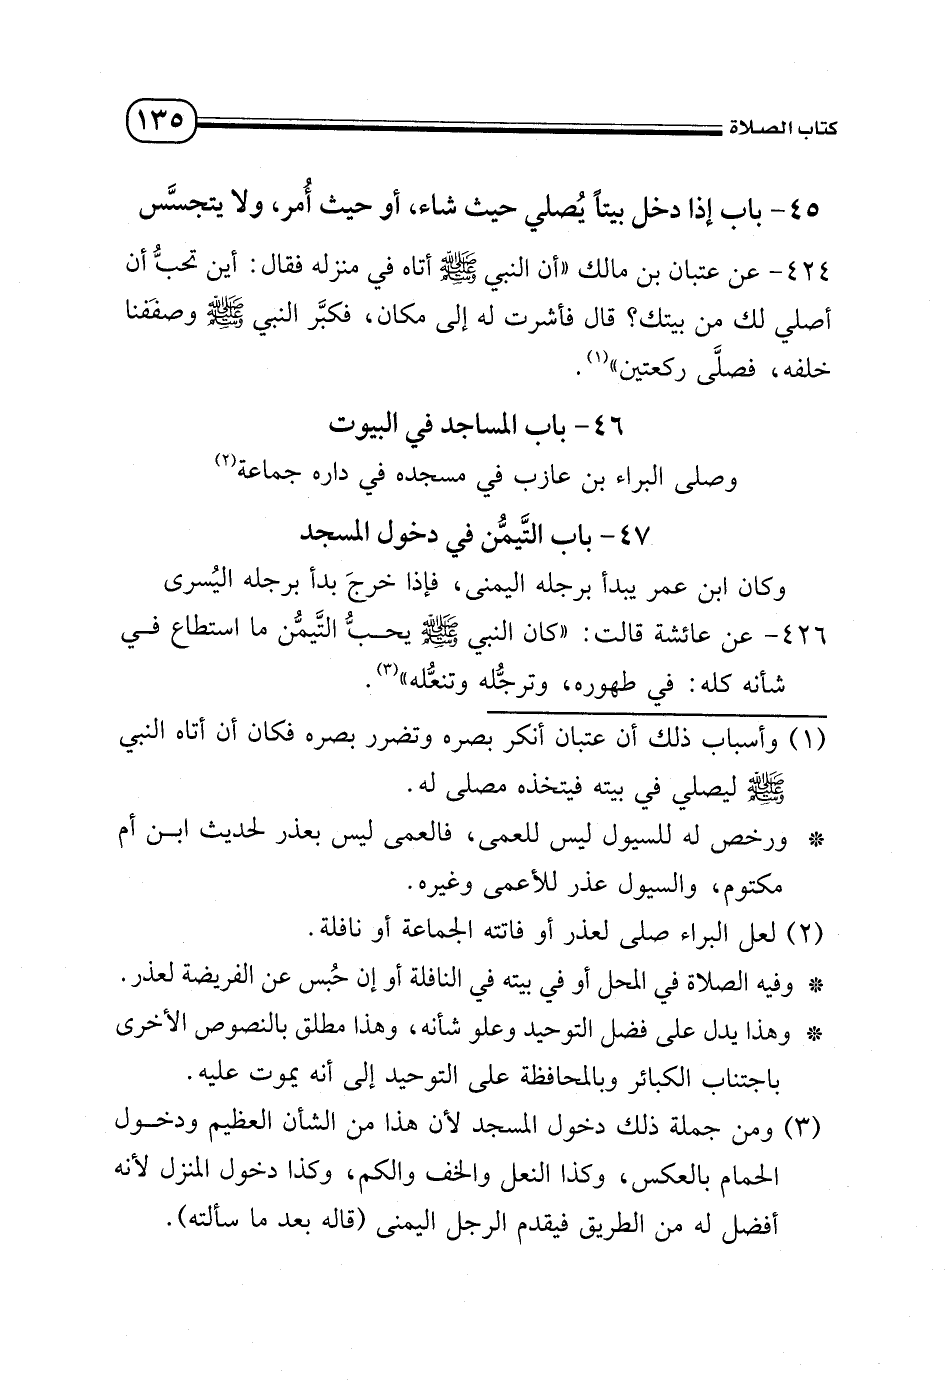 كتاب الصلاة ١٣٥
٤٥- باب إذا دخل بيتاً يُصلي حيث شاء، أو حيث أُمر، ولا يتجسَّس
٤٢٤- عن عتبان بن مالك «أن النبي ﷺ أتاه في منزله فقال: أين تحبُّ أن
أصلي لك من بيتك؟ قال فأشرت له إلى مكان، فكبَّر النبي ﷺ وصففنا
خلفه، فصلَّى ركعتين»(١).
٤٦- باب المساجد في البيوت
وصلى البراء بن عازب في مسجده في داره جماعة(٢)
٤٧- باب التَّيمُّن في دخول المسجد
وكان ابن عمر يبدأ برجله اليمنى، فإذا خرجَ بدأ برجله اليُسرى
٤٢٦- عن عائشة قالت: «كان النبي ﷺ يحبُّ التَّيمُّن ما استطاع في
شأنه كله: في طهوره، وترجُّله وتنعُّله»(٣).
(١) وأسباب ذلك أن عتبان أنكر بصره وتضرر بصره فكان أن أتاه النبي
ﷺ ليصلي في بيته فيتخذه مصلى له.
* ورخص له للسيول ليس للعمى، فالعمى ليس بعذر لحديث ابن أم
مكتوم، والسيول عذر للأعمى وغيره.
(٢) لعل البراء صلى لعذر أو فاتته الجماعة أو نافلة.
* وفيه الصلاة في المحل أو في بيته في النافلة أو إن حُبس عن الفريضة لعذر.
* وهذا يدل على فضل التوحيد وعلو شأنه، وهذا مطلق بالنصوص الأخرى
باجتناب الكبائر وبالمحافظة على التوحيد إلى أنه يموت عليه.
(٣) ومن جملة ذلك دخول المسجد لأن هذا من الشأن العظيم ودخول
الحمام بالعكس، وكذا النعل والخف والكم، وكذا دخول المنزل لأنه
أفضل له من الطريق فيقدم الرجل اليمنى (قاله بعد ما سألته).